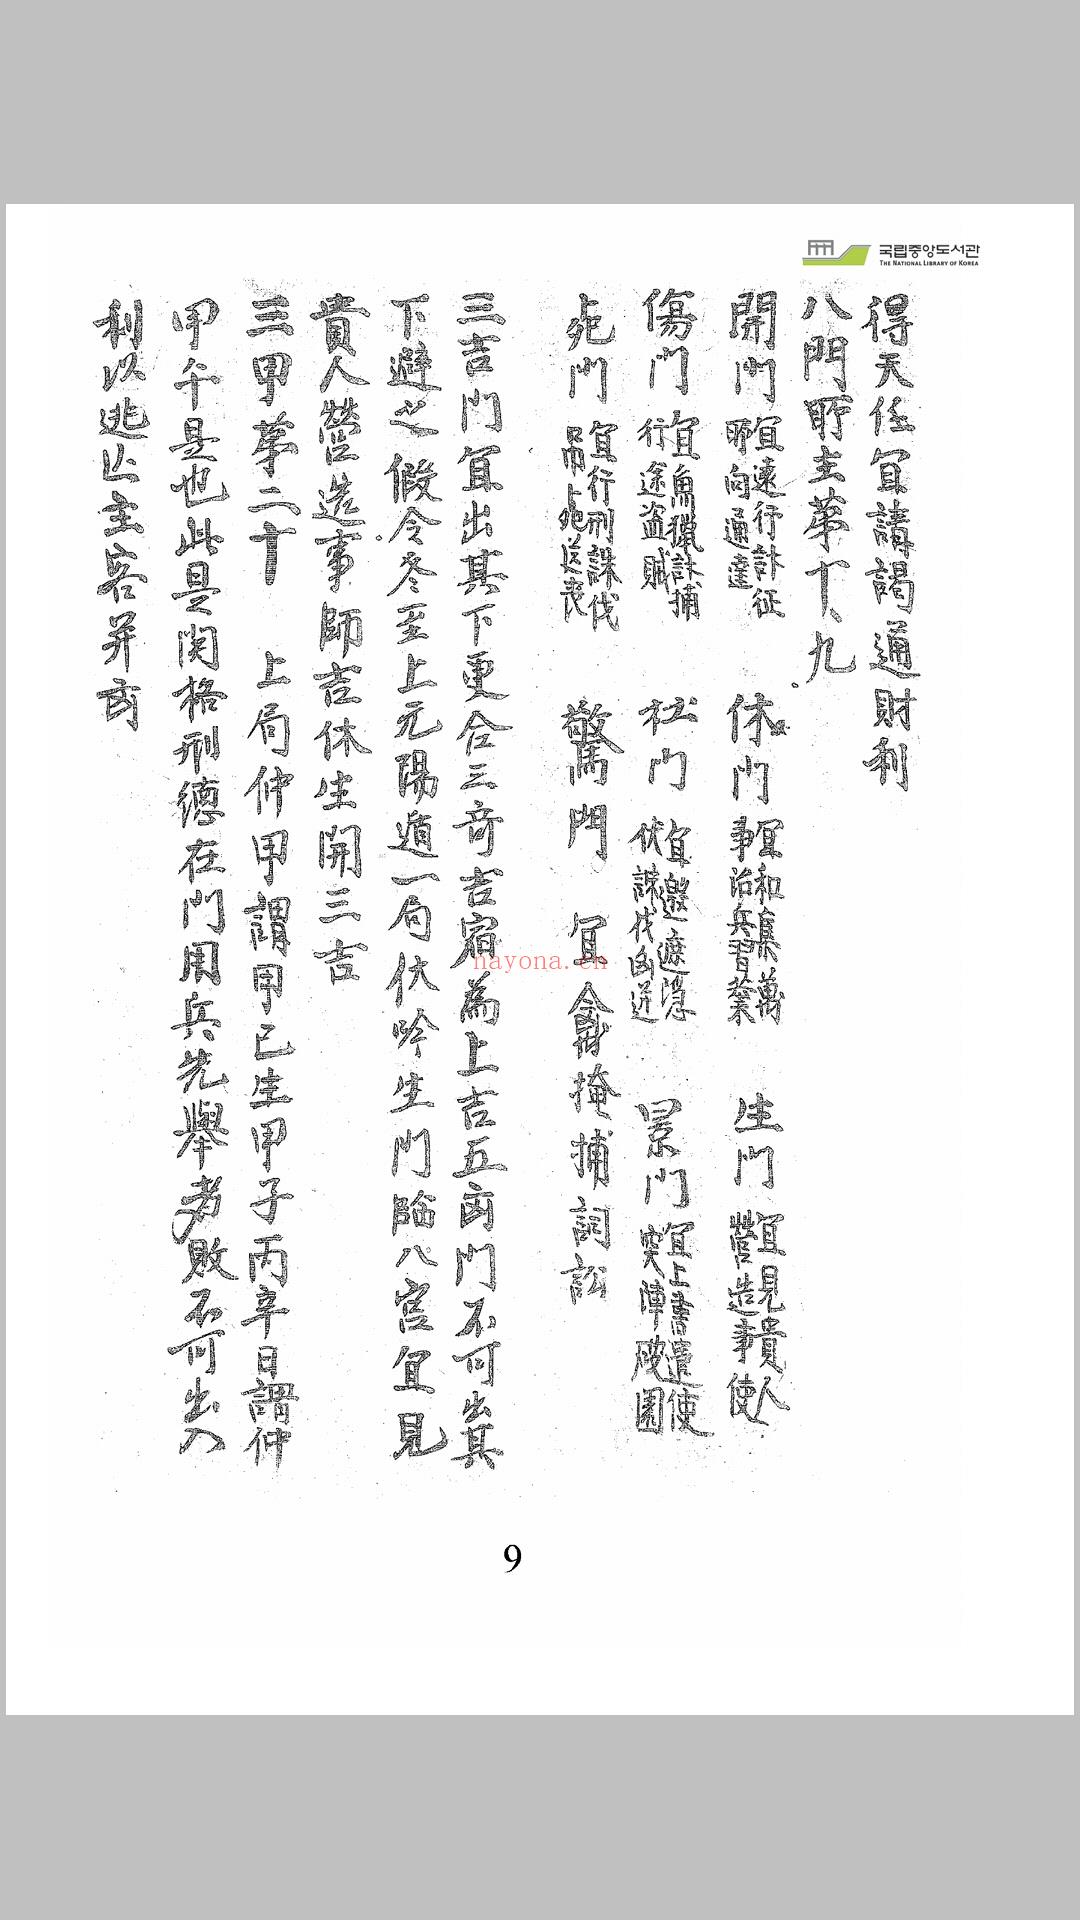 국립중앙도서관
THE NATIONAL LIBRARY OF KOREA
得天任宜請謁通財利
八門所主第十九
開門 宜遠行計征所向通達 休門 宜和集萬事治兵習業 生門 宜見貴人營造事使
傷門 宜魚獵計捕行途盜賊 杜門 宜邀遮隱伏誅伐凶逆 景門 宜上書遣使突陣破圍
死門 宜行刑誅伐吊死送喪 驚門 宜掩捕詞訟
三吉門宜出其下更合三奇吉宿為上吉五凶門不可出其
下避之假令冬至上元陽遁一局伏吟生門臨八宮宜見
貴人營造事師吉休生開三吉
三甲第二十 上局仲甲謂甲己生甲子丙辛日謂仲
甲午是也此是関格刑德在門用兵先舉者敗不可出入
利以逃亡主客并凶
nayona.cn
9